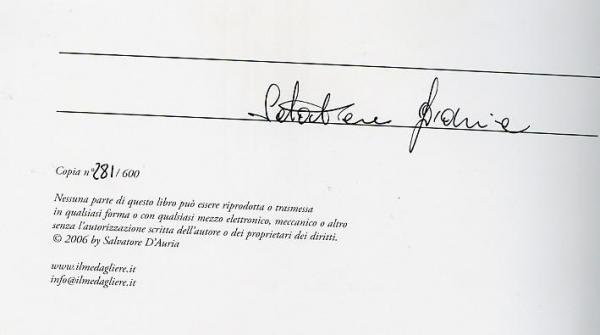 Salvatore D'Auria
Copia n° 281 / 600
Nessuna parte di questo libro può essere riprodotta o trasmessa
in qualsiasi forma o con qualsiasi mezzo elettronico, meccanico o altro
senza l'autorizzazione scritta dell'autore o dei proprietari dei diritti.
© 2006 by Salvatore D'Auria
www.ilmedagliere.it
info@ilmedagliere.it